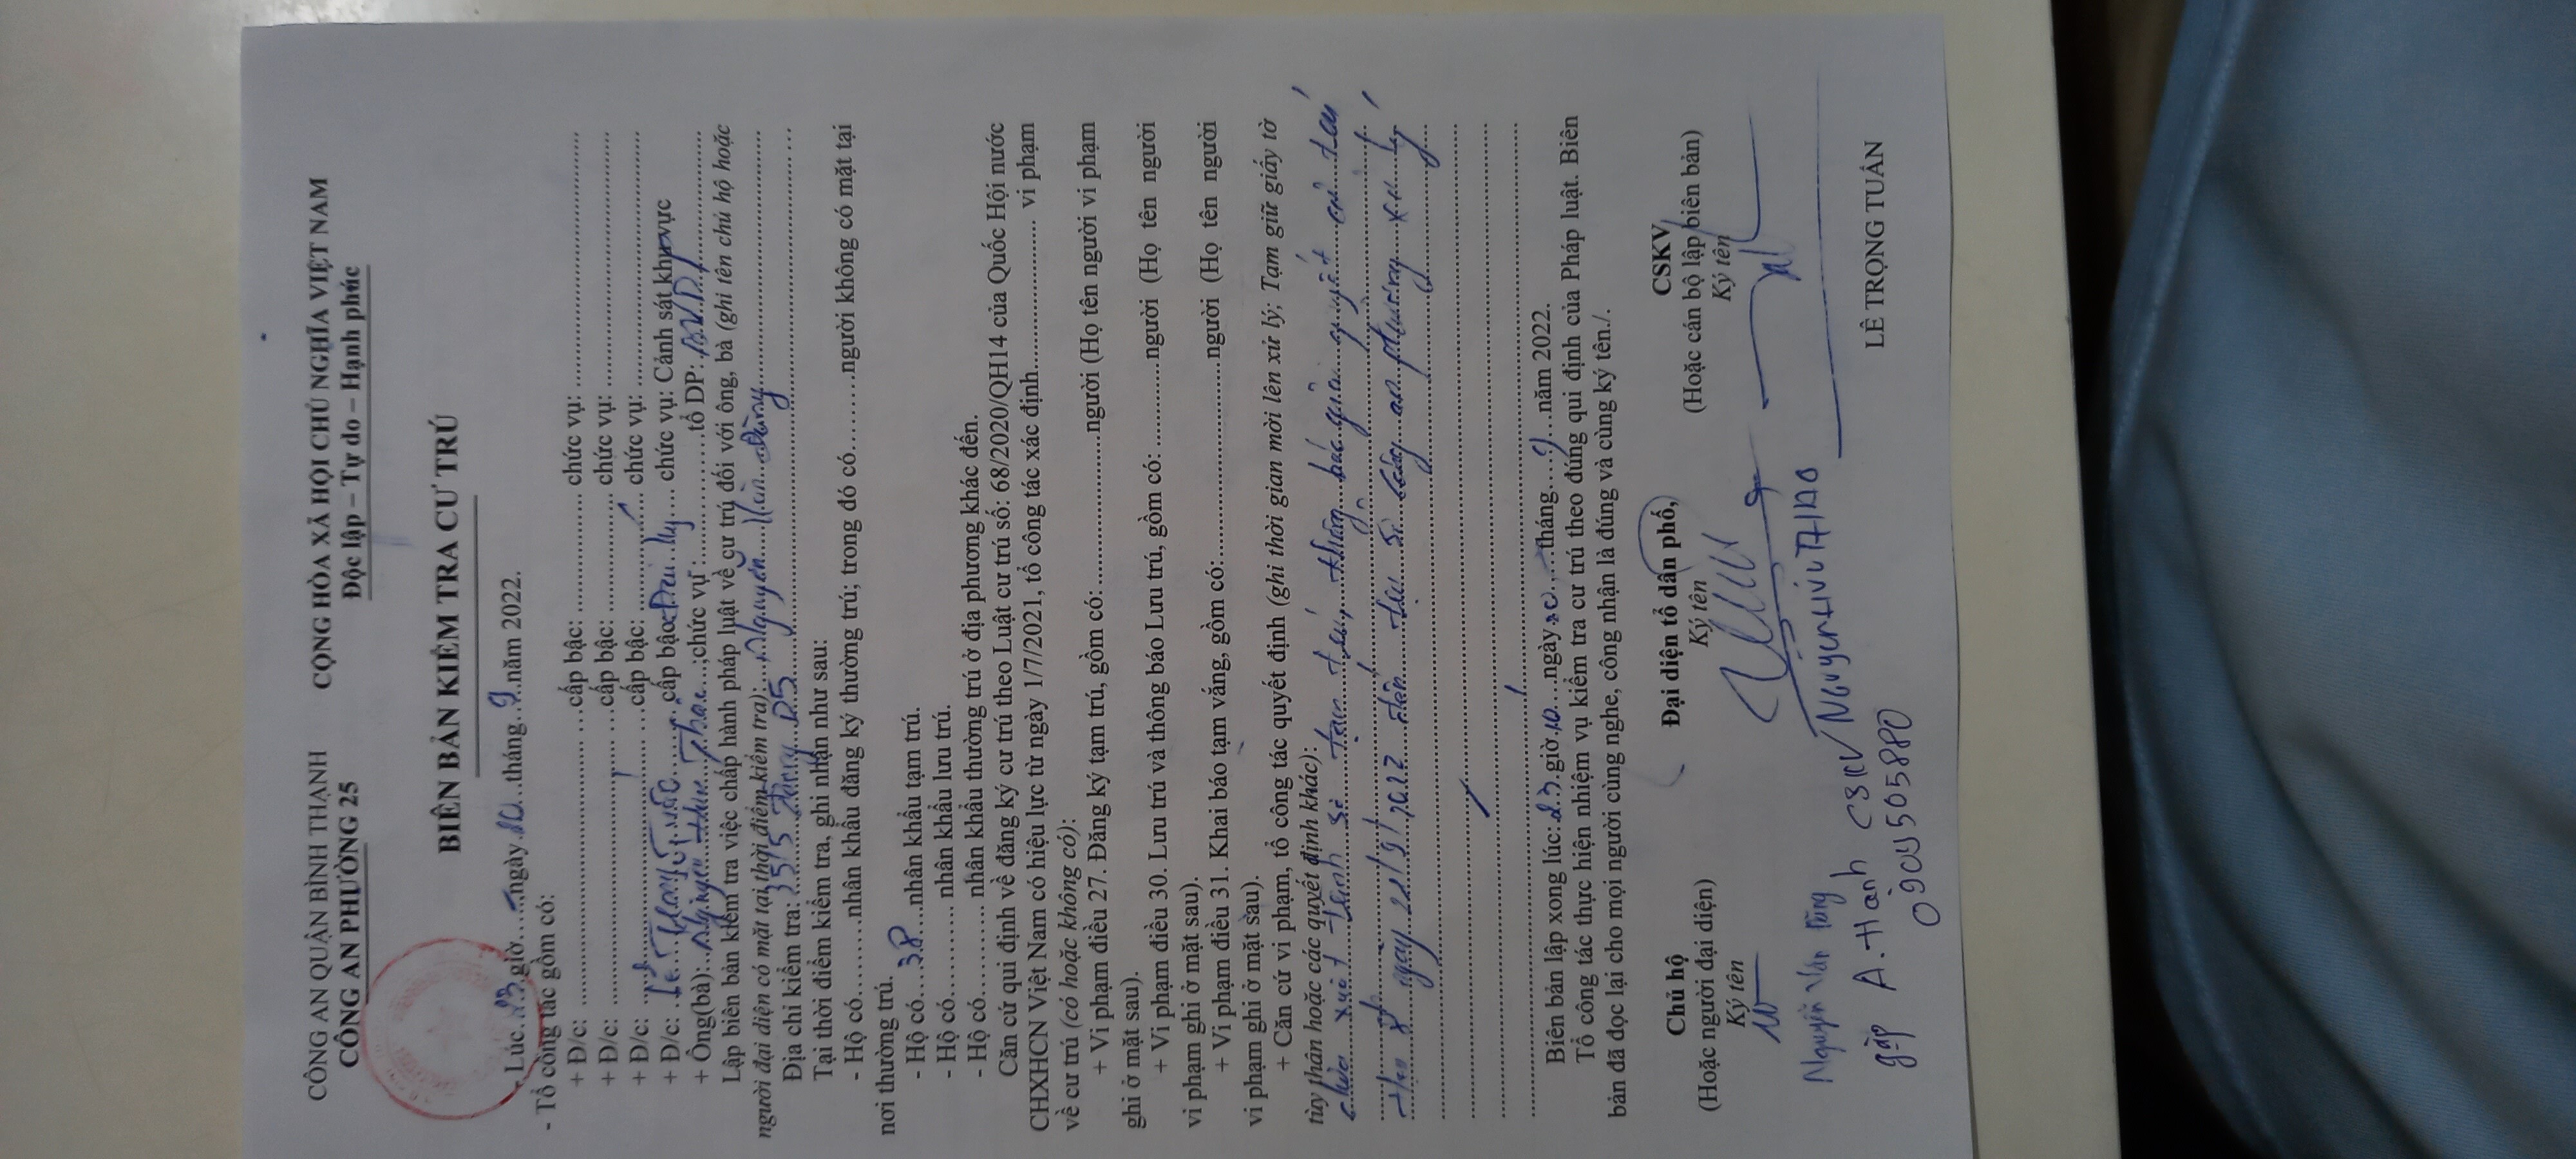 CÔNG AN QUẬN BÌNH THẠNH
CÔNG AN PHƯỜNG 25
CỘNG HÒA XÃ HỘI CHỦ NGHĨA VIỆT NAM
Độc lập – Tự do – Hạnh phúc
BIÊN BẢN KIỂM TRA CƯ TRÚ
- Lúc 23 giờ......ngày 20...tháng...9...năm 2022.
- Tổ công tác gồm có:
+ Đ/c: ........................ cấp bậc: ............... chức vụ: ...........................
+ Đ/c: ........................ cấp bậc: ............... chức vụ: ...........................
+ Đ/c: ........................ cấp bậc: ............... chức vụ: ...........................
+ Đ/c: Lê Trọng Tuấn cấp bậc: Đại úy chức vụ: Cảnh sát khu vực
+ Ông(bà): Nguyễn Hữu Thảo; chức vụ: ............ tổ DP: BVDP
Lập biên bản kiểm tra việc chấp hành pháp luật về cư trú đối với ông, bà (ghi tên chủ hộ hoặc
người đại diện có mặt tại thời điểm kiểm tra): Nguyễn Văn Dũng
Địa chỉ kiểm tra: 35/5 Đường D5
Tại thời điểm kiểm tra, ghi nhận như sau:
- Hộ có.........nhân khẩu đăng ký thường trú; trong đó có.........người không có mặt tại
nơi thường trú.
- Hộ có...38...nhân khẩu tạm trú.
- Hộ có.......... nhân khẩu lưu trú.
- Hộ có.......... nhân khẩu thường trú ở địa phương khác đến.
Căn cứ qui định về đăng ký cư trú theo Luật cư trú số: 68/2020/QH14 của Quốc Hội nước
CHXHCN Việt Nam có hiệu lực từ ngày 1/7/2021, tổ công tác xác định.................. vi phạm
về cư trú (có hoặc không có):
+ Vi phạm điều 27. Đăng ký tạm trú, gồm có:..................người (Họ tên người vi phạm
ghi ở mặt sau).
+ Vi phạm điều 30. Lưu trú và thông báo Lưu trú, gồm có: ............người (Họ tên người
vi phạm ghi ở mặt sau).
+ Vi phạm điều 31. Khai báo tạm vắng, gồm có:........................người (Họ tên người
vi phạm ghi ở mặt sau).
+ Căn cứ vi phạm, tổ công tác quyết định (ghi thời gian mời lên xử lý; Tạm giữ giấy tờ
tùy thân hoặc các quyết định khác):
chưa xuất trình sổ tạm trú, thông báo giải quyết cư trú
Hẹn 8h ngày 22/9/2022 đến trụ sở Công an phường xử lý
Biên bản lập xong lúc: 23 giờ 10...ngày 20...tháng...9...năm 2022.
Tổ công tác thực hiện nhiệm vụ kiểm tra cư trú theo đúng qui định của Pháp luật. Biên
bản đã đọc lại cho mọi người cùng nghe, công nhận là đúng và cùng ký tên./.
Chủ hộ
(Hoặc người đại diện)
Ký tên
Nguyễn Văn Dũng
Đại diện tổ dân phố,
Ký tên
Nguyễn Hữu Thảo
CSKV
(Hoặc cán bộ lập biên bản)
Ký tên
LÊ TRỌNG TUẤN
gặp A. Hành CSKV
0909505880